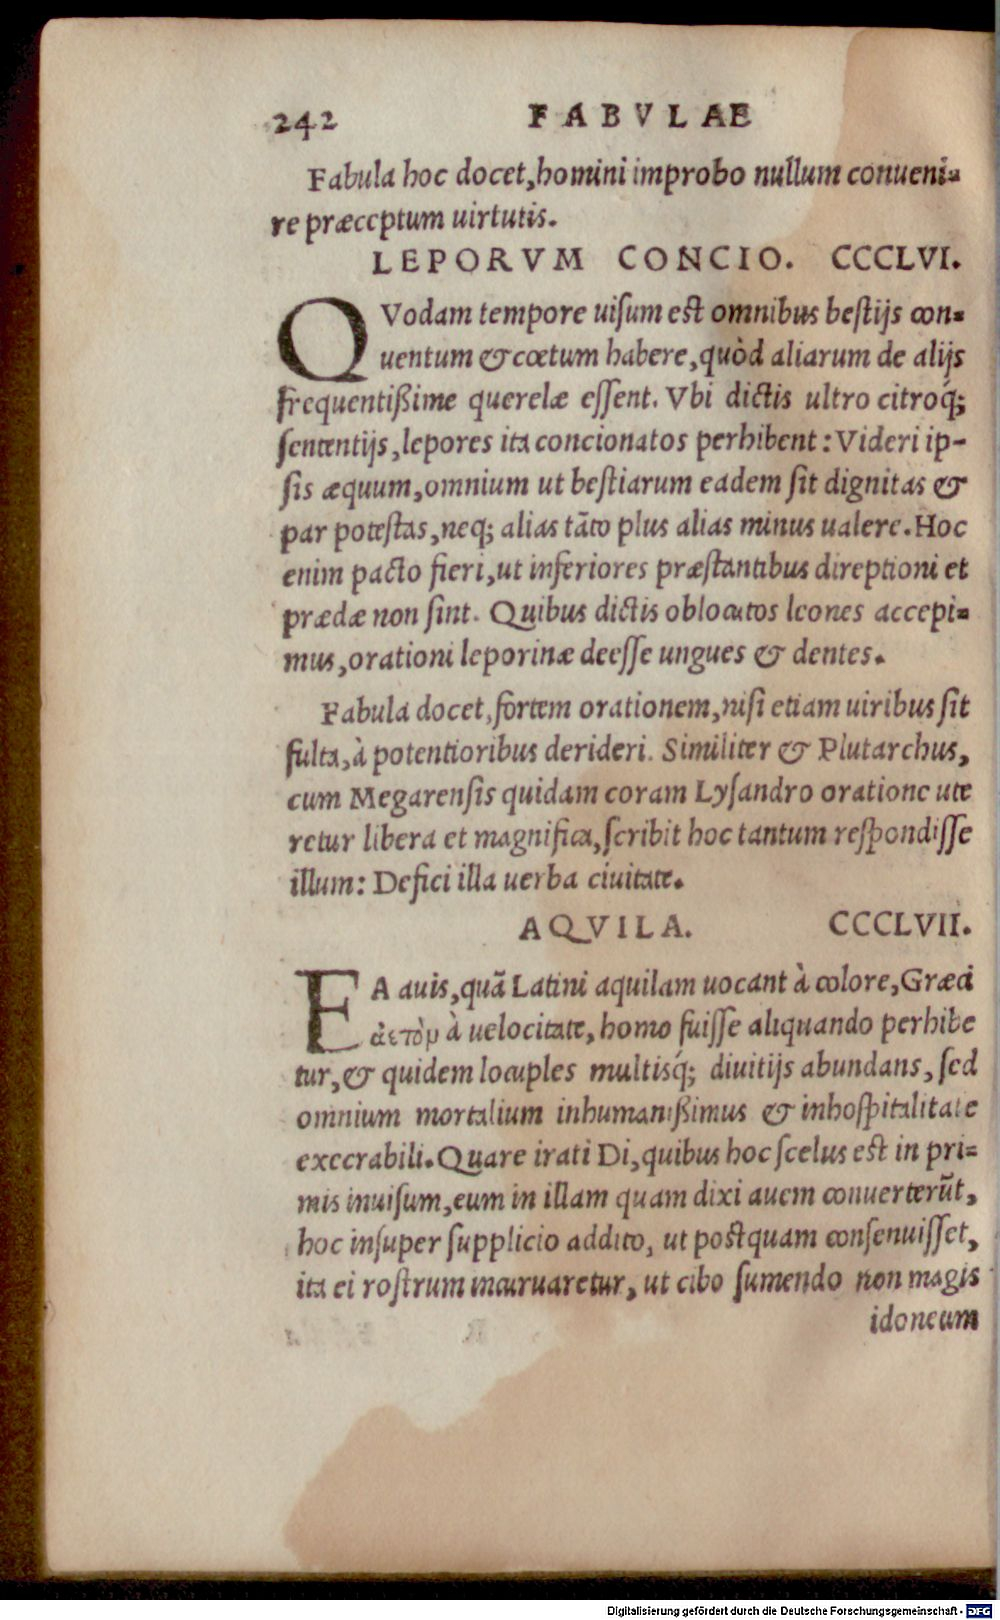 242 FABVLAE
Fabula hoc docet, homini improbo nullum conueni-
re præceptum uirtutis.
LEPORVM CONCIO. CCCLVI.
QVodam tempore uisum est omnibus bestijs con-
uentum & cœtum habere, quòd aliarum de alijs
frequentißime querelæ essent. Vbi dictis ultro citroq́;
sententijs, lepores ita concionatos perhibent: Videri ip-
sis æquum, omnium ut bestiarum eadem sit dignitas &
par potestas, neq; alias tāto plus alias minus ualere. Hoc
enim pacto fieri, ut inferiores præstantibus direptioni et
prædæ non sint. Quibus dictis oblocutos leones accepi-
mus, orationi leporinæ deesse ungues & dentes.
Fabula docet, fortem orationem, nisi etiam uiribus sit
fulta, à potentioribus derideri. Similiter & Plutarchus,
cum Megarensis quidam coram Lysandro oratione ute
retur libera et magnifica, scribit hoc tantum respondisse
illum: Defici illa uerba ciuitate.
AQVILA. CCCLVII.
EA auis, quā Latini aquilam uocant à colore, Græci
ἀετὸν à uelocitate, homo fuisse aliquando perhibe
tur, & quidem locuples multisq́; diuitijs abundans, sed
omnium mortalium inhumanißimus & inhospitalitate
execrabili. Quare irati Di, quibus hoc scelus est in pri-
mis inuisum, eum in illam quam dixi auem conuerterūt,
hoc insuper supplicio addito, ut postquam consenuisset,
ita ei rostrum incuruaretur, ut cibo sumendo non magis
idoneum
Digitalisierung gefördert durch die Deutsche Forschungsgemeinschaft - DFG